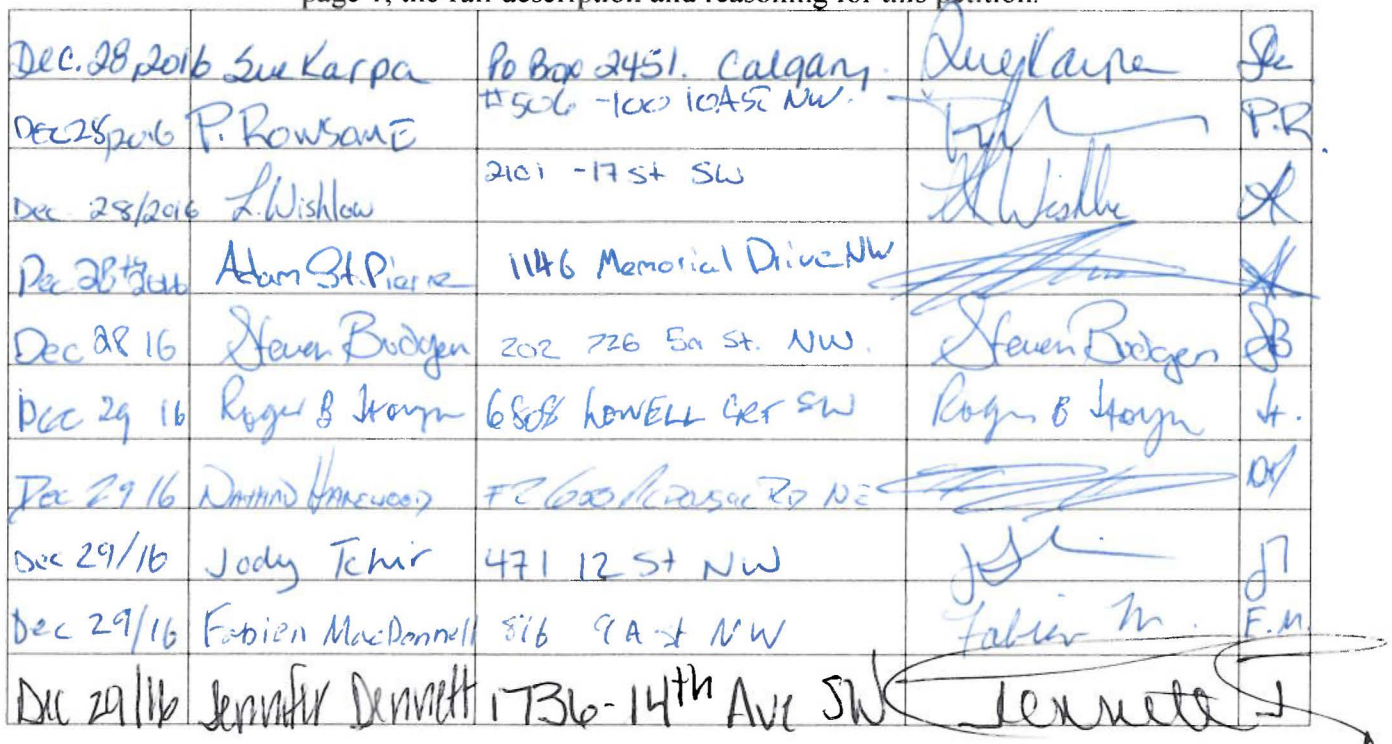 page 1, the full description and reasoning for this petition.
Dec. 28, 2016 Sue Karpa Po Box 2451. Calgary. Sue Karpa SK
Dec 28, 2016 P. Rowsome #506 -100 10A St NW. P.R
Dec 28/2016 L. Wishlow 2101 -17 St SW
Dec 28th 2016 Adam St. Pierre 1146 Memorial Drive NW
Dec 28 16 Steven Bodgen 202 726 5a St. NW. Steven Bodgen SB
Dec 29 16 Roger B 6808 LOWELL CRT SW Roger B H.
Dec 29 16 NE
Dec 29/16 Jody Tchir 471 12 St NW JT
Dec 29/16 Fabien MacDonnell 816 9A st NW Fabien M. F.M.
Dec 29/16 Jennifer Dennett 1736-14th Ave SW Dennett J